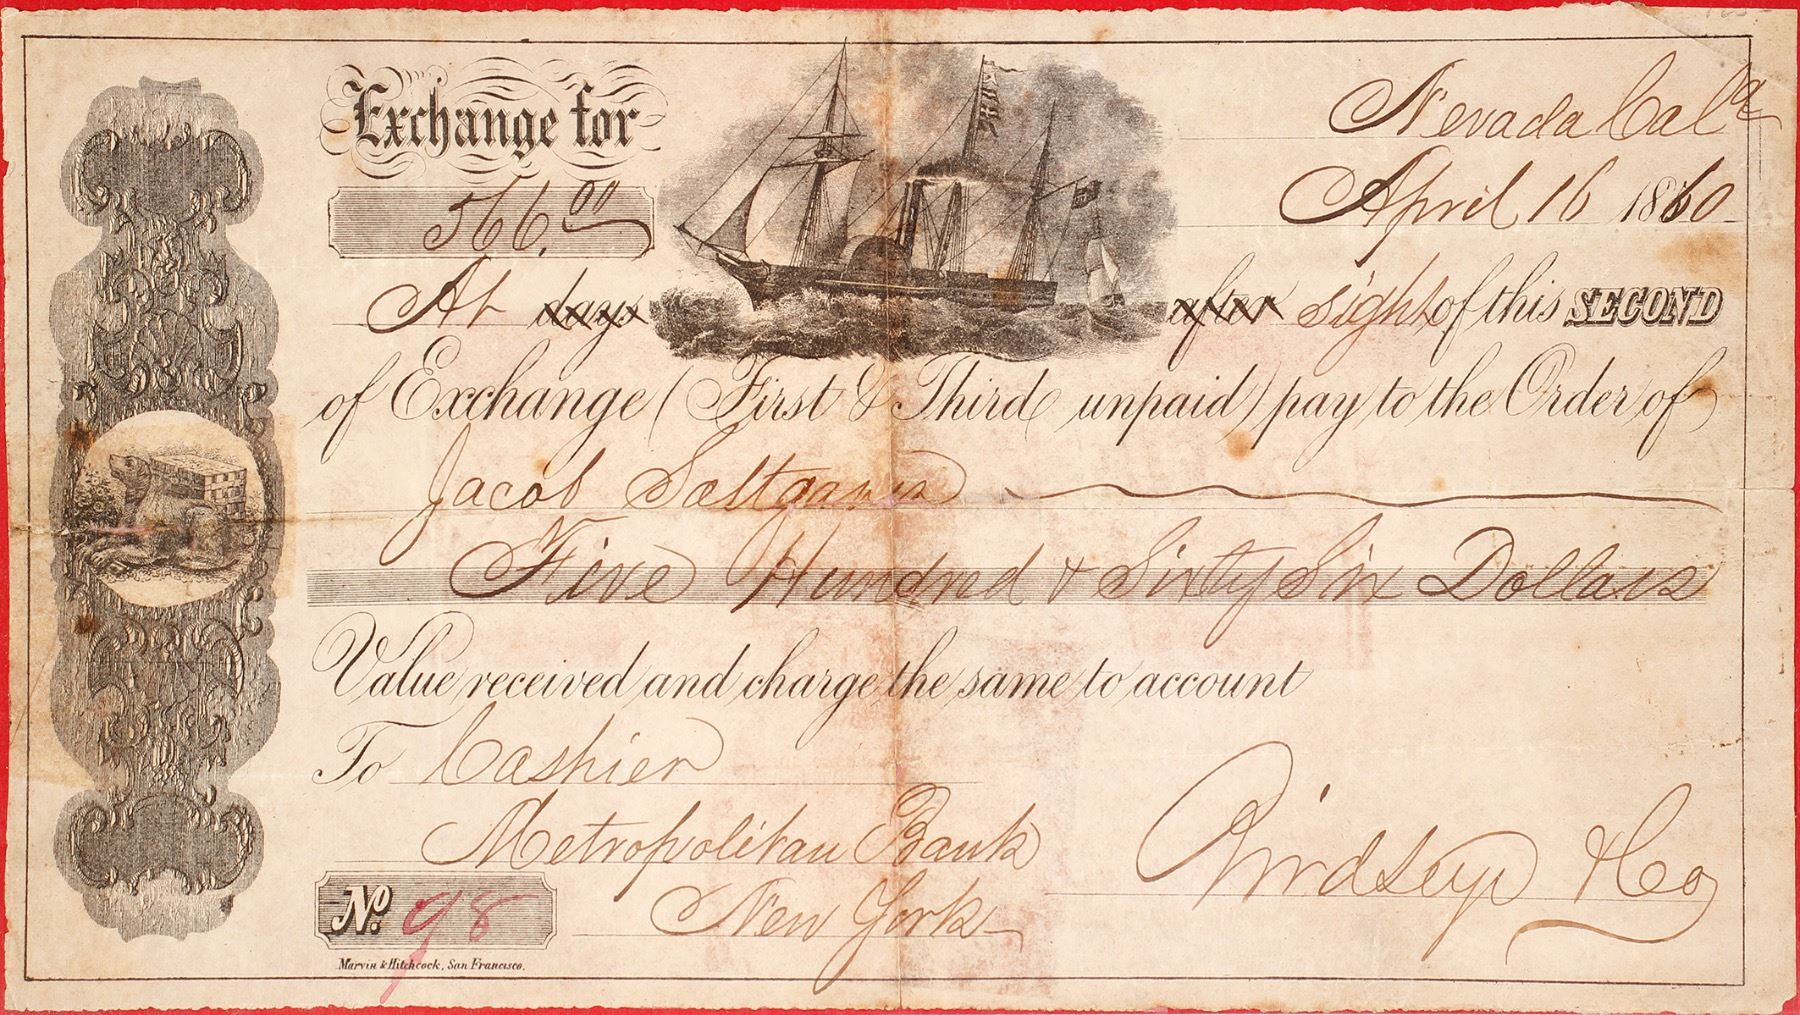 Exchange for
Nevada Cala
566.00
April 16 1860
At days after sight of this SECOND
of Exchange (First & Third unpaid) pay to the Order of
Jacob
Five Hundred & Sixty Six Dollars
Value received and charge the same to account
To Cashier
Metropolitan Bank
New York
Birdseye & Co
No. 98
Marvin & Hitchcock, San Francisco.